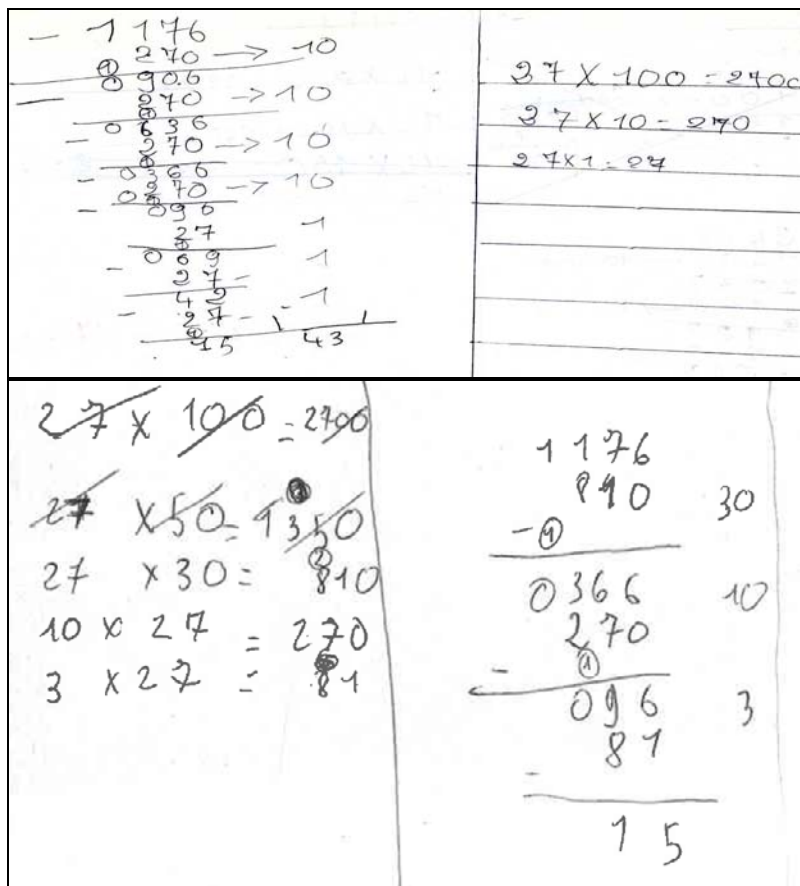 - 1176
270 → 10
① 0 906
- 270 → 10
① 0 636
- 270 → 10
① 0 366
- 270 → 10
0 ① 096
- 27 1
① 069
- 27 - 1
42
- 27 - 1
① 15 43
27 X 100 = 2700
27 X 10 = 270
27 x 1 = 27
27 x 100 = 2700
27 x 50 = 1350
27 x 30 = 810
②
10 x 27 = 270
3 x 27 = 81
1176
810 30
- ①
0366 10
270
- ①
096 3
81
-
15